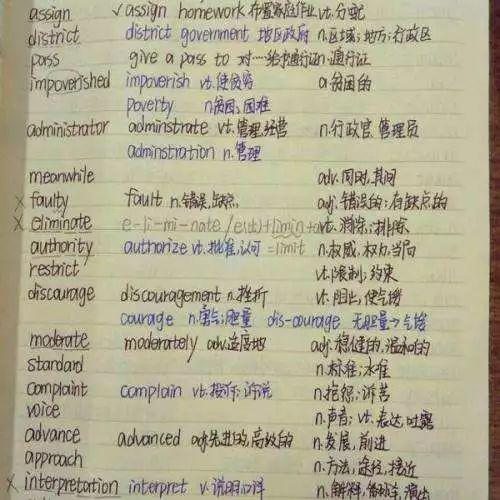 assign ✓assign homework 布置家庭作业 vt.分配
district district government 地区政府 n.区域;地方;行政区
pass give a pass to 对…给予通行证 n.通行证
impoverished impoverish vt.使贫穷 a.贫困的
poverty n.贫困,困难
administrator adminstrate vt.管理,经营 n.行政官,管理员
adminstration n.管理
meanwhile adv.同时,其间
× faulty fault n.错误,缺点 adj.错误的;有缺点的
× eliminate e-li-mi-nate /e(出)+limin+ate vt.消除;排除
authority authorize vt.批准,认可 =limit n.权威,权力,当局
restrict vt.限制;约束
discourage discouragement n.挫折 vt.阻止,使气馁
courage n.勇气;胆量 dis-courage 无胆量→气馁
moderate moderately adv.适度地 adj.稳健的,温和的
standard n.标准;水准
complaint complain vt.投诉;诉说 n.抱怨;诉苦
voice n.声音;vt.表达,吐露
advance advanced adj.先进的,高级的 n.发展,前进
approach n.方法,途径,接近
× interpretation interpret v.说明,口译 n.解释,翻译,演出